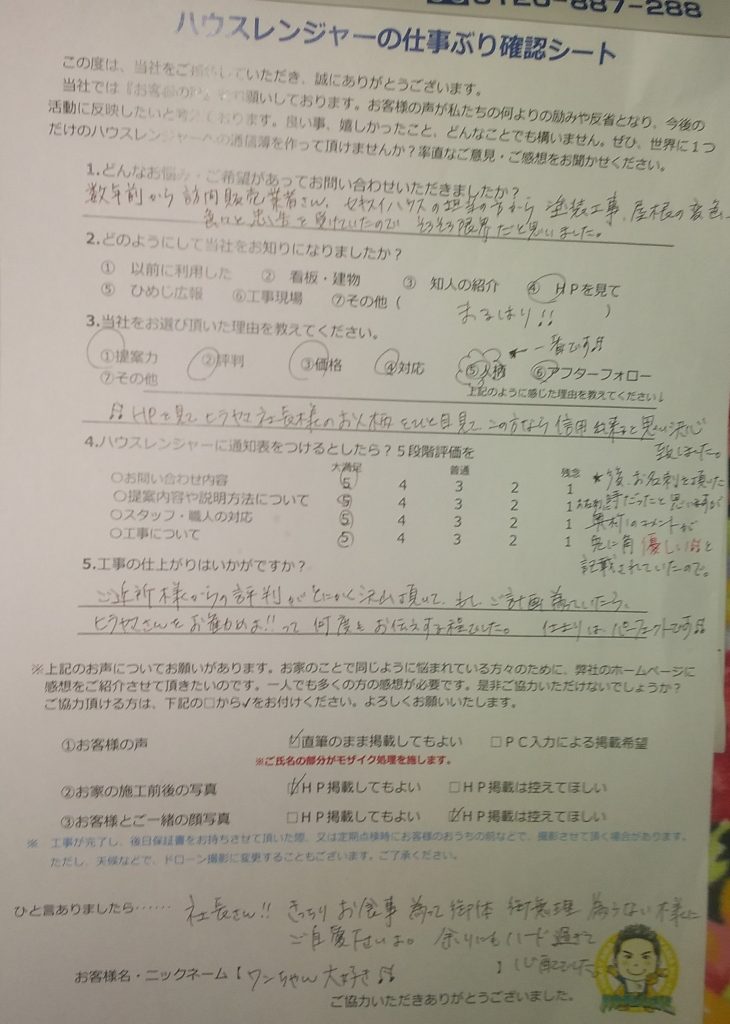 0120-887-288
ハウスレンジャーの仕事ぶり確認シート
この度は、当社をご していただき、誠にありがとうございます。
当社では『お客様の声』をお願いしております。お客様の声が私たちの何よりの励みや反省となり、今後の
活動に反映したいと考えております。良い事、嬉しかったこと、どんなことでも構いません。ぜひ、世界に１つ
だけのハウスレンジャーへの通信簿を作って頂けませんか？率直なご意見・ご感想をお聞かせください。
1.どんなお悩み・ご希望があってお問い合わせいただきましたか？
数年前から訪問販売業者さん、セキスイハウスの担当の方から 塗装工事、屋根の変色
色々と忠告を受けていたので そろそろ限界だと思いました。
2.どのようにして当社をお知りになりましたか？
① 以前に利用した ② 看板・建物 ③ 知人の紹介 ④ ＨＰを見て
⑤ ひめじ広報 ⑥工事現場 ⑦その他（ まるはり!! ）
3.当社をお選び頂いた理由を教えてください。
一番です♫
①提案力 ②評判 ③価格 ④対応 ⑤人柄 ⑥アフターフォロー
⑦その他 上記のように感じた理由を教えてください↓
♫ HPを見て ヒラヤマ社長様のお人柄をひと目見て この方なら信用出来ると思い決心
致しました。
4.ハウスレンジャーに通知表をつけるとしたら？５段階評価を
大満足 普通 残念
○お問い合わせ内容 5 4 3 2 1
○提案内容や説明方法について 5 4 3 2 1
○スタッフ・職人の対応 5 4 3 2 1
○工事について 5 4 3 2 1
★後 お名刺を頂いた
だったと思いますが
コメントが
兎に角 優しい♫と
記載されていたので。
5.工事の仕上がりはいかがですか？
ご近所様からの評判がとにかく沢山頂いて、もし、ご計画為っていたら、
ヒラヤマさんをお勧めよ!!って 何度もお伝えする程でした。 仕上りは パーフェクトです♫
※上記のお声についてお願いがあります。お家のことで同じように悩まれている方々のために、弊社のホームページに
感想をご紹介させて頂きたいのです。一人でも多くの方の感想が必要です。是非ご協力いただけないでしょうか？
ご協力頂ける方は、下記の□から✓をお付けください。よろしくお願いいたします。
①お客様の声 ☑直筆のまま掲載してもよい □ＰＣ入力による掲載希望
※ご氏名の部分がモザイク処理を施します。
②お家の施工前後の写真 ☑ＨＰ掲載してもよい □ＨＰ掲載は控えてほしい
③お客様とご一緒の顔写真 □ＨＰ掲載してもよい ☑ＨＰ掲載は控えてほしい
※ 工事が完了し、後日保証書をお持ちさせて頂いた際、又は定期点検時にお客様のおうちの前などで、撮影させて頂く場合があります。
ただし、天候などで、ドローン撮影に変更することもございます。ご了承ください。
ひと言ありましたら…… 社長さん!! きっちりお食事為って御体 御無理為さらない様に
ご自愛下さいね。 余りにもハード過ぎて
お客様名・ニックネーム【 ワンちゃん大好き♫ 】 心配でした
ご協力いただきありがとうございました。